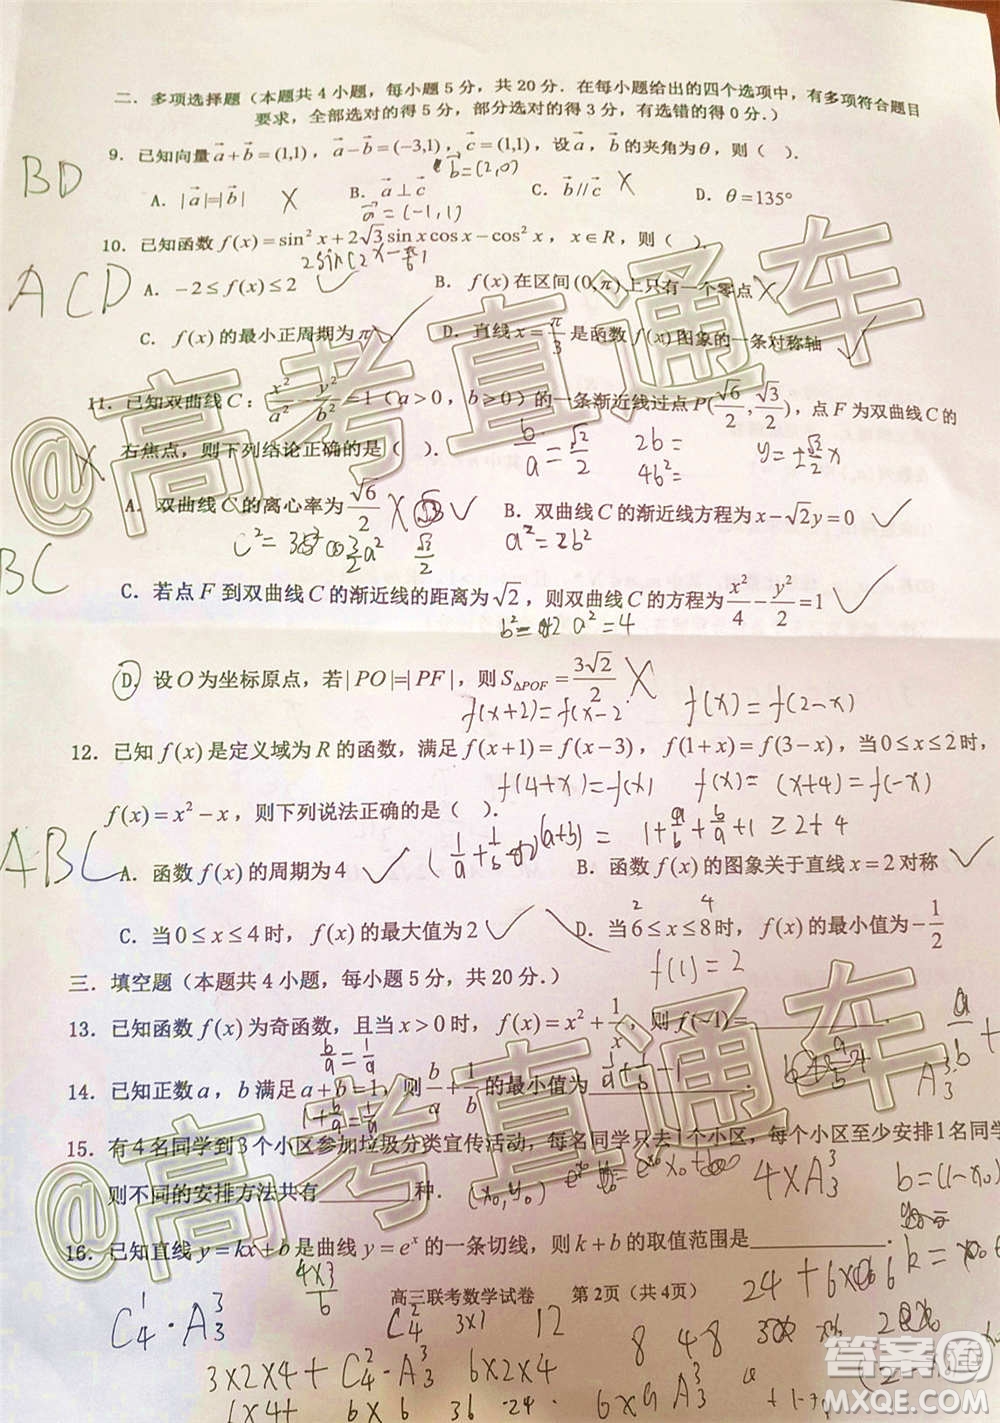 二．多项选择题（本题共4小题，每小题5分，共20分．在每小题给出的四个选项中，有多项符合题目
要求，全部选对的得5分，部分选对的得3分，有选错的得0分．）
9．已知向量a+b=(1,1)，a−b=(−3,1)，c=(1,1)，设a，b的夹角为θ，则（ ）．
BD
b=(2,0)
A．|a|=|b| × B．a⊥c C．b//c × D．θ=135°
a=(-1,1)
10．已知函数f(x)=sin²x+2√3sinxcosx−cos²x，x∈R，则（ ）．
ACD
A．−2≤f(x)≤2 B．f(x)在区间(0,π)上只有一个零点 ×
C．f(x)的最小正周期为π ✓ D．直线x=π/3是函数f(x)图象的一条对称轴 ✓
11．已知双曲线C：x²/a²−y²/b²=1（a>0，b≥0）的一条渐近线过点P(√6/2,√3/2)，点F为双曲线C的
右焦点，则下列结论正确的是（ ）．
b/a=√2/2 2b= y=±√2/2 x
4b²=
A．双曲线C的离心率为√6/2 × B．双曲线C的渐近线方程为x−√2y=0 ✓
a²=2b²
√2/2
BC
C．若点F到双曲线C的渐近线的距离为√2，则双曲线C的方程为x²/4−y²/2=1 ✓
a²=4
D．设O为坐标原点，若|PO|=|PF|，则S△POF=3√2/2 ×
f(x+2)=f(x-2 f(x)=f(2-x)
12．已知f(x)是定义域为R的函数，满足f(x+1)=f(x−3)，f(1+x)=f(3−x)，当0≤x≤2时，
f(4+x)=f(x) f(x)= (x+4)=f(-x)
f(x)=x²−x，则下列说法正确的是（ ）．
ABC
(a+b)= 1+a/b+b/a+1≥2+4
A．函数f(x)的周期为4 ✓ B．函数f(x)的图象关于直线x=2对称 ✓
2 4
C．当0≤x≤4时，f(x)的最大值为2 ✓ D．当6≤x≤8时，f(x)的最小值为−1/2
f(1)=2
三．填空题（本题共4小题，每小题5分，共20分．）
13．已知函数f(x)为奇函数，且当x>0时，f(x)=x²+1/x，则f(−1)=
b/a=1/a
14．已知正数a，b满足a+b=1，则b/a+1/b的最小值为
1+b/a=1/a
15．有4名同学到3个小区参加垃圾分类宣传活动，每名同学只去1个小区，每个小区至少安排1名同学
则不同的安排方法共有 种．
(x₀,y₀) 4×A₃³ b=(1-x₀)
16．已知直线y=kx+b是曲线y=eˣ的一条切线，则k+b的取值范围是 ．
4×3/6
高三联考数学试卷 第2页（共4页）
C₄¹·A₃³ C₄² 3×1 12 8 48
3×2×4+C₄²·A₃³ 6×2×4
@高考直通车
@高考直通车
答案圈
MXQE.COM